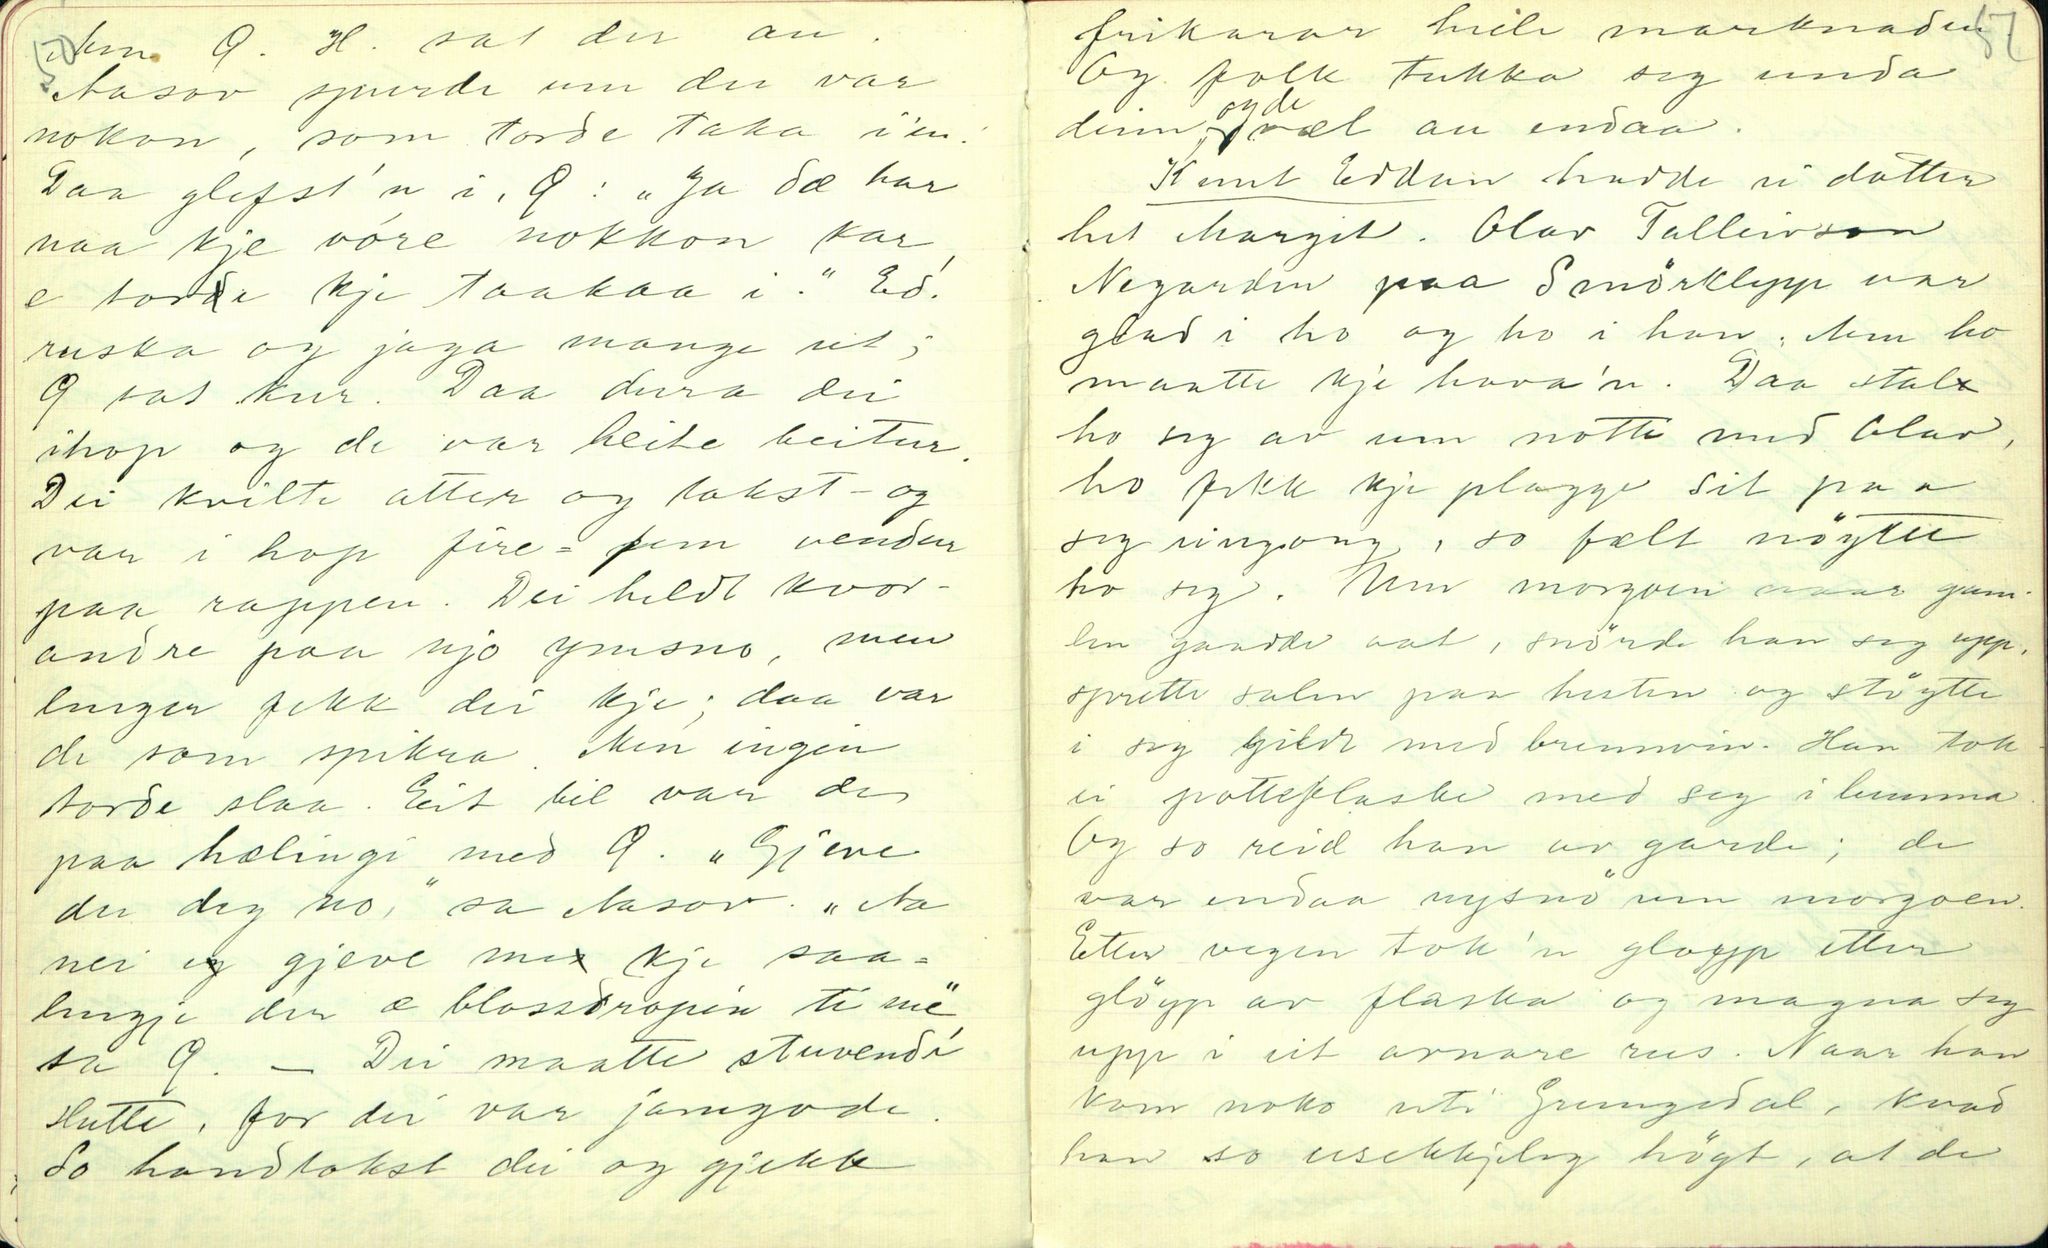 Men G. H. sat der au.
Aasov spurde um der var
nokon, som torde taka i'en.
Daa glefst'n i, G: „Ja dæ har
naa kje vóre nokkon kar,
e torde kje taakaa i." Ed.
ruska og jaga mange ut;
G sat kur. Daa dura dei
ihop og de var heite beitur.
Dei kvilte atter og tokst - og
var i hop fire = fem vendur
paa rappen. Dei heldt kvor-
andre paa njo ymsno, men
lenger fekk dei kje; daa var
de som spikra. Men ingin
torde slaa. Eit bil var de
paa hælingi med G. „Gjeve
du deg no," sa Aasov. „Aa
nei eg gjeve me kje saa =
lengje der æ blossdropen ti me"
sa G. — Dei maatte stuvendi
slutte, for dei var jamgode.
So handtokst dei og gjekk
57
frikarar heile marknaden
Og folk tukka seg unda
deim, ogde væl au endaa.
Knut Eddan hadde ei dotter
het Margit. Olav Talleivson
Negarden paa Smörklepp var
glad i ho og ho i han. Men ho
maatte kje hava'n. Daa stal
ho seg av um notti med Olav,
ho fekk kje plaggje sit paa
seg eingong, so fælt nöytte
ho seg. Um morgoen naar gam-
len gaadde aat, snörde han seg upp,
sprette salen paa hesten og stöytte
i seg gildt med brennvin. Han tok
ei potteflaske med seg i lumma.
Og so reid han av garde; de
var endaa nysnö um morgoen.
Etter vegen tok'n glöypp etter
glöypp av flaska og magna seg
upp i eit arnare rus. Naar han
kom noko uti Grungedal, kvad
han so usekkjeleg högt, at de